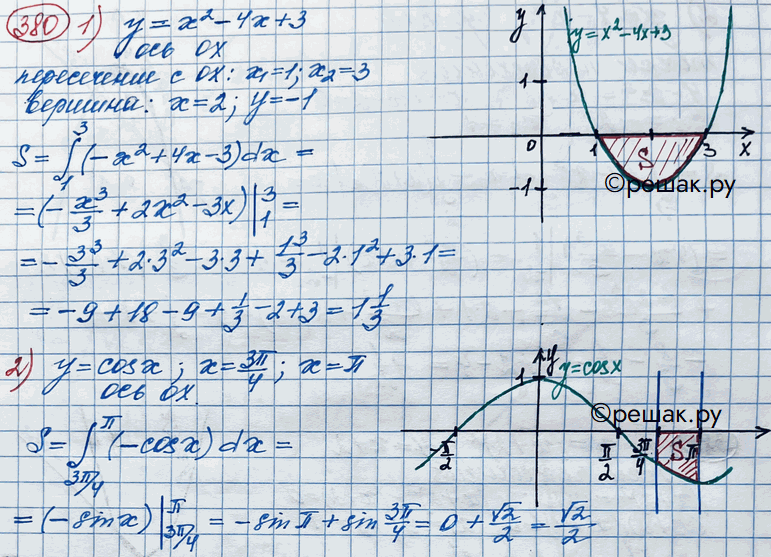 380 1) y = x² - 4x + 3
ось OX
пересечение с OX: x₁=1; x₂=3
вершина: x=2; y=-1
S = ∫₁³ (-x² + 4x - 3) dx =
= (-x³/3 + 2x² - 3x) |₁³ =
= - 3³/3 + 2·3² - 3·3 + 1³/3 - 2·1² + 3·1 =
= -9 + 18 - 9 + 1/3 - 2 + 3 = 1 1/3
y
y = x² - 4x + 3
1
0 1 S 3 x
-1
©решак.ру
2) y = cos x ; x = 3π/4 ; x = π
ось OX
S = ∫_{3π/4}^{π} (-cos x) dx =
= (-sin x) |_{3π/4}^{π} = -sin π + sin 3π/4 = 0 + √2/2 = √2/2
y
1 y = cos x
©решак.ру
-π/2 π/2 3π/4 S π